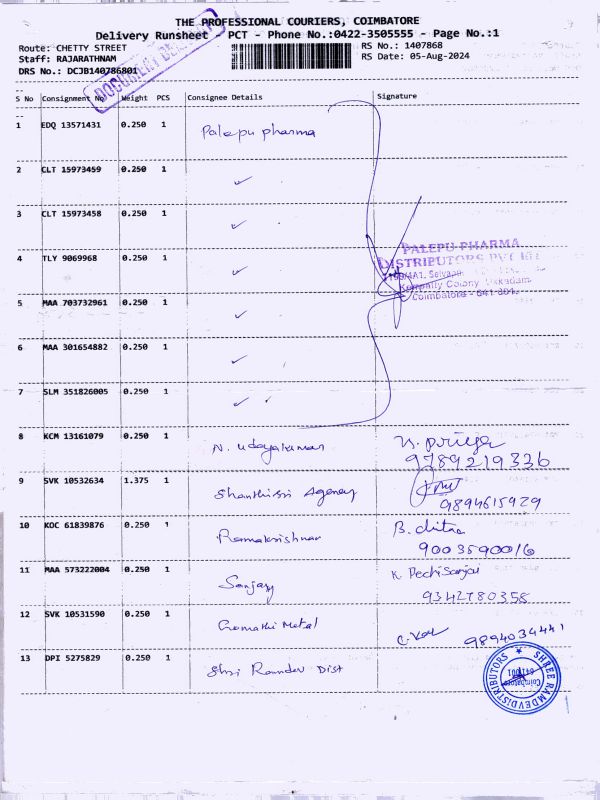 THE PROFESSIONAL COURIERS, COIMBATORE
Delivery Runsheet - PCT - Phone No.:0422-3505555 - Page No.:1
Route: CHETTY STREET
RS No.: 1407868
Staff: RAJARATHNAM
RS Date: 05-Aug-2024
DRS No.: DCJB140786801
DOCUMENT
S No Consignment No Weight PCS Consignee Details Signature
1 EDQ 13571431 0.250 1 Palepu pharma
2 CLT 15973459 0.250 1 ✓
3 CLT 15973458 0.250 1 ✓
PALEPU PHARMA
DISTRIBUTORS PVT LTD
4 TLY 9069968 0.250 1 ✓
Colony
Coimbatore - 641 001.
5 MAA 703732961 0.250 1 ✓
6 MAA 301654882 0.250 1 ✓
7 SLM 351826005 0.250 1 ✓
8 KCM 13161079 0.250 1 N. Udayakumar N. priya
9789219336
9 SVK 10532634 1.375 1 Shanthi Sri Agency
9894615929
10 KOC 61839876 0.250 1 Ramakrishnan B. chitra
9003590016
11 MAA 573222004 0.250 1 Sanjay K. PechiSanjai
9342780358
12 SVK 10531590 0.250 1 Gomathi Metal 9894034441
13 DPI 5275829 0.250 1 Shri Ramdev Dist
SHREE RAMDEV DISTRIBUTORS
Coimbatore
641 001